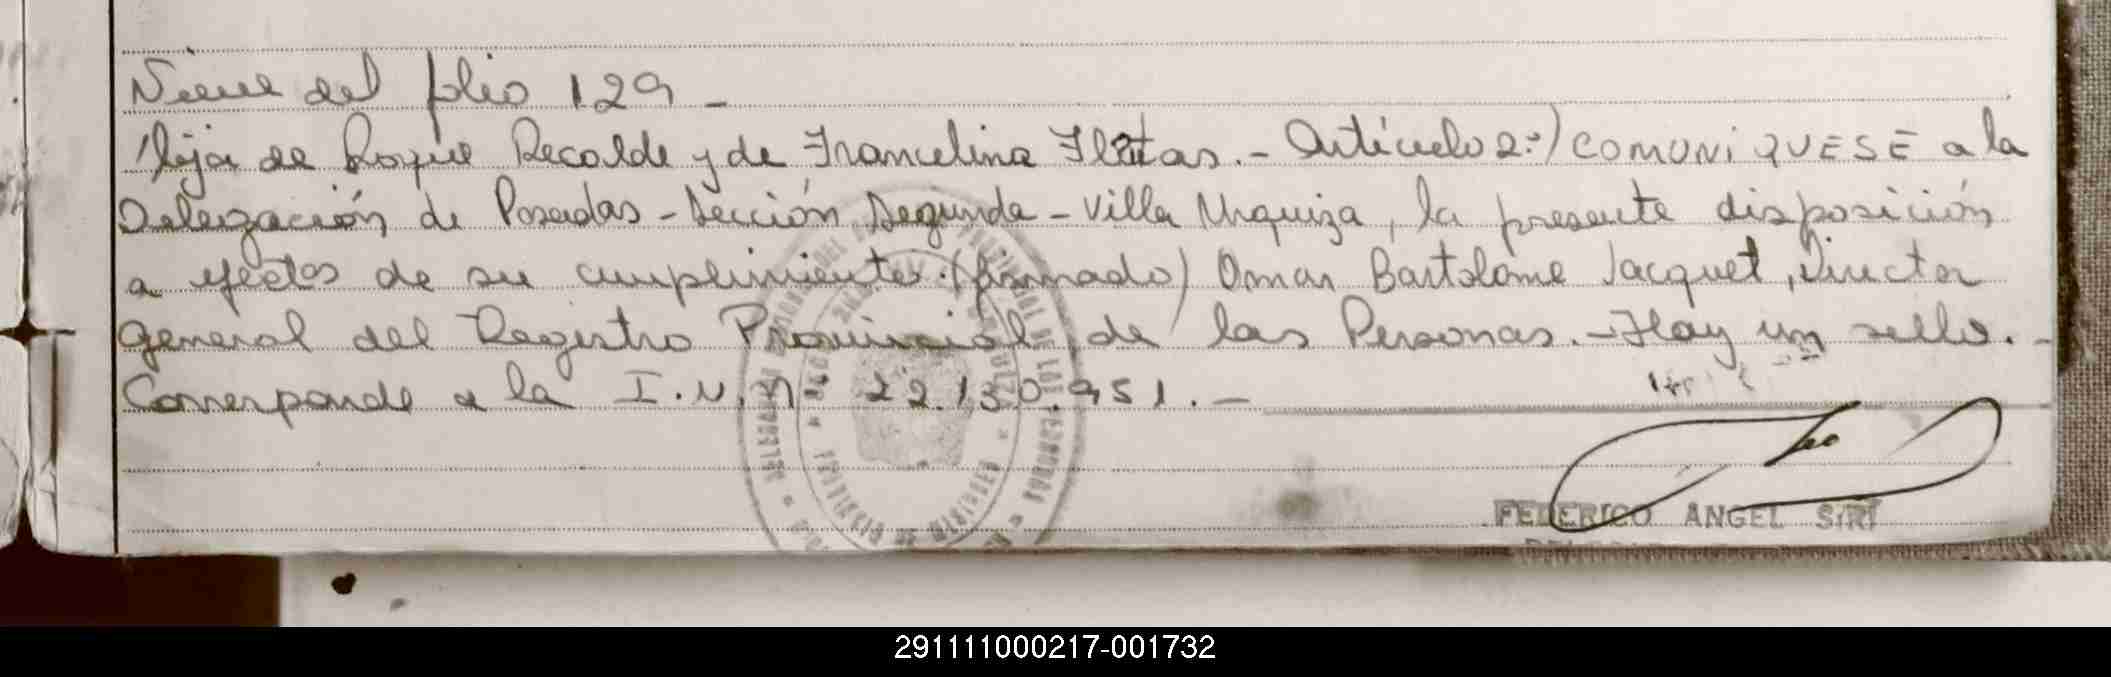 Viene del folio 129 -
hija de Roque Recalde y de Francelina Fleitas.- Artículo 2º) COMUNIQUESE a la
Delegación de Posadas - Sección Segunda - Villa Urquiza, la presente disposición
a efectos de su cumplimiento. (firmado) Omar Bartolome Jacquet, Director
General del Registro Provincial de las Personas. - Hay un sello. -
Corresponde a la I.N.Nº 22.130.951. -
FEDERICO ANGEL SIRI
291111000217-001732